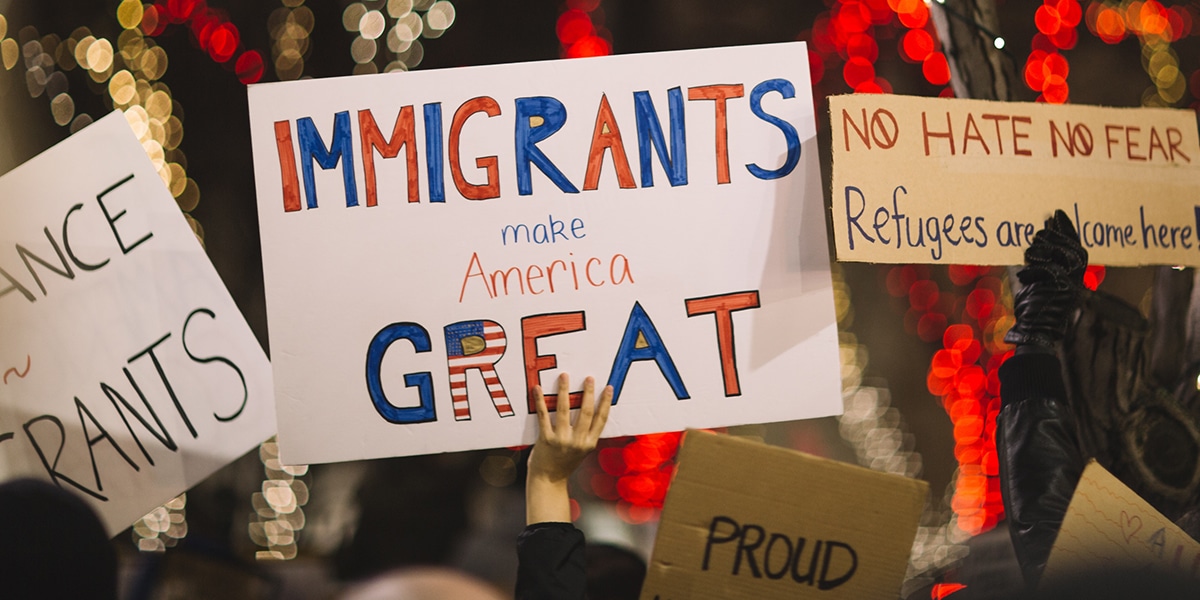 IMMIGRANTS
make
America
GREAT
NO HATE NO FEAR
Refugees are welcome here!
ANCE
~
RANTS
PROUD
A